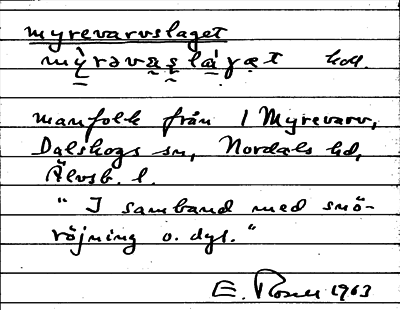 myrevarvslaget
mỳ̱rəva̰s̰lá̱gæt koll.
manfolk från 1 Myrevarv,
Dalskogs sn, Nordals hd,
Älvsb. l.
" I samband med snö-
röjning o. dyl. "
E. 1963